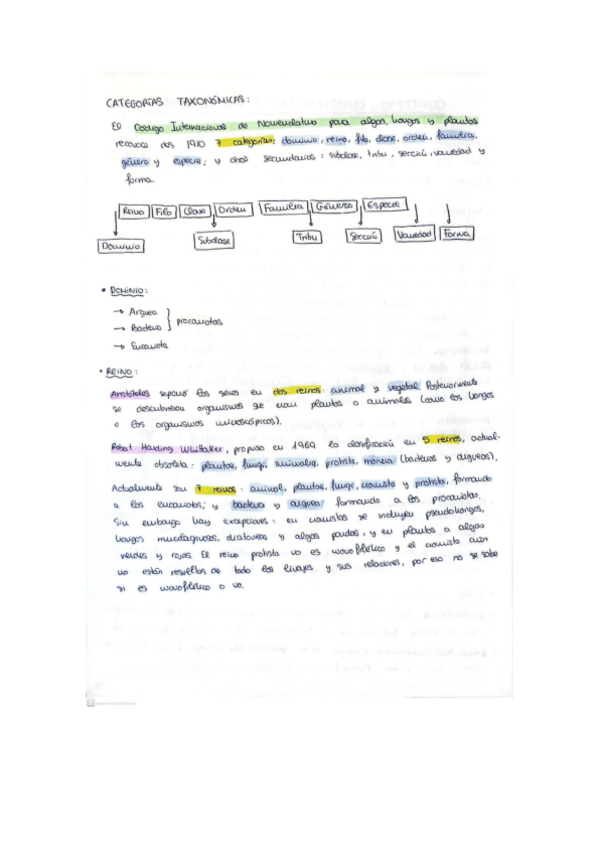 CATEGORÍAS TAXONÓMICAS:
El Código Internacional de Nomenclatura para algas, hongos y plantas
reconoce des 1910 7 categorías: dominio, reino, filo, clase, orden, familia,
género y especie; y otras secundarias: subclase, tribu, sección, variedad y
forma.
Reino Filo Clase Orden Familia Género Especie
Dominio Subclase Tribu Sección Variedad Forma
• DOMINIO:
→ Arquea
→ Bacteria } procariotas
→ Eucariota
• REINO:
Aristóteles separó los seres en dos reinos: animal y vegetal. Posteriormente
se descubrieron organismos que eran plantas o animales (como los hongos
o los organismos microscópicos).
Robert Harding Whittaker, propuso en 1969 la clasificación en 5 reinos, actual-
mente obsoleta: plantae, fungi, animalia, protista, monera (bacterias y arqueas).
Actualmente son 7 reinos: animal, plantae, fungi, cromista y protista, formando
a los eucariotas; y bacteria y arquea formando a los procariotas.
Sin embargo hay excepciones: en cromistas se incluyen pseudohongos,
hongos mucilaginosos, diatomeas y algas pardas, y en plantas a algas
verdes y rojas. El reino protista no es monofilético y el cromista aún
no están resueltos de todo los linajes y sus relaciones, por eso no se sabe
si es monofilético o no.